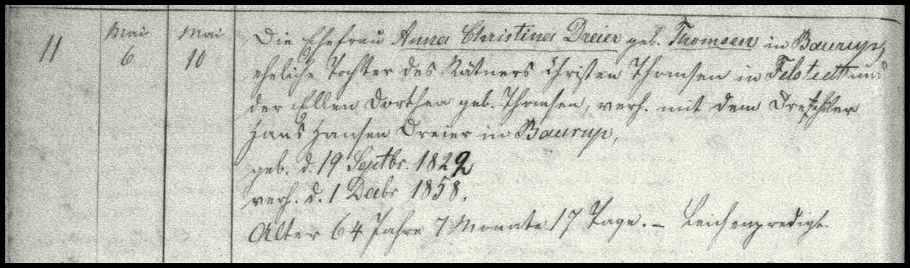 11 Mai 6 Mai 10 Die Ehefrau Anna Christina Dreier geb. Thomsen in Baurup,
eheliche Tochter des Kätners Christen Thomsen in Feldstedt und
der Ellen Dorthea geb. Thomsen, verh. mit dem Drechsler
Hans Hansen Dreier in Baurup,
geb. d. 19 Septbr. 1822
verh. d. 1 Decbr 1858.
Alter 64 Jahre 7 Monate 17 Tage. – Leichenpredigt.